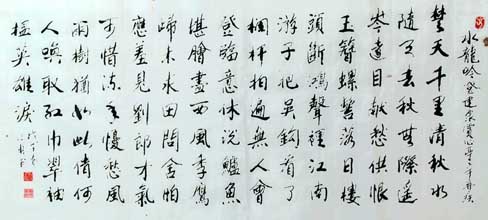 水龍吟登建康賞心亭辛棄疾
楚天千里清秋水
隨天去秋無際遙
岑遠目獻愁供恨
玉簪螺髻落日樓
頭斷鴻聲裡江南
游子把吳鉤看了
欄杆拍遍無人會
登臨意休說鱸魚
堪膾盡西風季鷹
歸未求田問舍怕
應羞見劉郎才氣
可惜流年憂愁風
雨樹猶如此倩何
人喚取紅巾翠袖
揾英雄淚